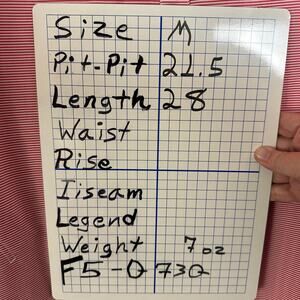 Size M
Pit-Pit 21.5
Length 28
Waist
Rise
Iiseam
Legend
Weight 7 oz
F5-Q 730